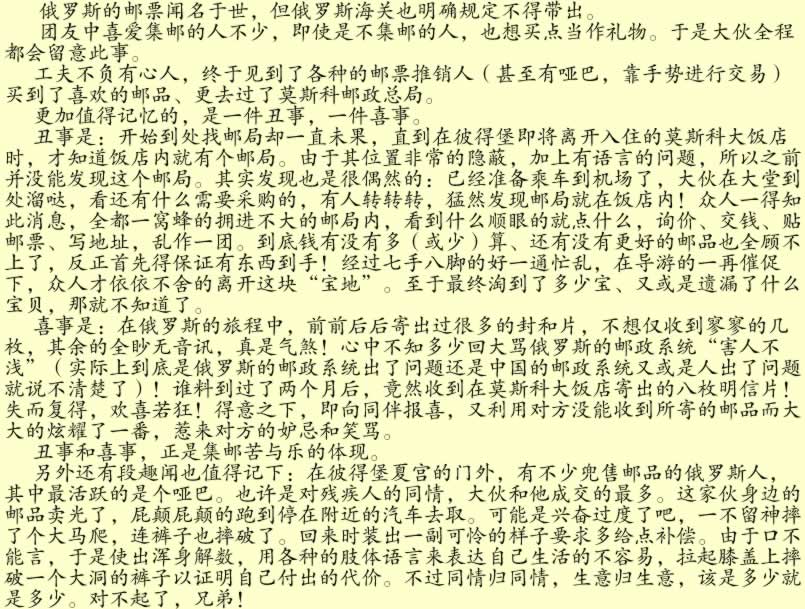 俄罗斯的邮票闻名于世，但俄罗斯海关也明确规定不得带出。
团友中喜爱集邮的人不少，即使是不集邮的人，也想买点当作礼物。于是大伙全程
都会留意此事。
工夫不负有心人，终于见到了各种的邮票推销人（甚至有哑巴，靠手势进行交易）
买到了喜欢的邮品、更去过了莫斯科邮政总局。
更加值得记忆的，是一件丑事，一件喜事。
丑事是：开始到处找邮局却一直未果，直到在彼得堡即将离开入住的莫斯科大饭店
时，才知道饭店内就有个邮局。由于其位置非常的隐蔽，加上有语言的问题，所以之前
并没能发现这个邮局。其实发现也是很偶然的：已经准备乘车到机场了，大伙在大堂到
处溜哒，看还有什么需要采购的，有人转转转，猛然发现邮局就在饭店内！众人一得知
此消息，全都一窝蜂的拥进不大的邮局内，看到什么顺眼的就点什么，询价、交钱、贴
邮票、写地址，乱作一团。到底钱有没有多（或少）算、还有没有更好的邮品也全顾不
上了，反正首先得保证有东西到手！经过七手八脚的好一通忙乱，在导游的一再催促
下，众人才依依不舍的离开这块“宝地”。至于最终淘到了多少宝、又或是遗漏了什么
宝贝，那就不知道了。
喜事是：在俄罗斯的旅程中，前前后后寄出过很多的封和片，不想仅收到寥寥的几
枚，其余的全眇无音讯，真是气煞！心中不知多少回大骂俄罗斯的邮政系统“害人不
浅”（实际上到底是俄罗斯的邮政系统出了问题还是中国的邮政系统又或是人出了问题
就说不清楚了）！谁料到过了两个月后，竟然收到在莫斯科大饭店寄出的八枚明信片！
失而复得，欢喜若狂！得意之下，即向同伴报喜，又利用对方没能收到所寄的邮品而大
大的炫耀了一番，惹来对方的妒忌和笑骂。
丑事和喜事，正是集邮苦与乐的体现。
另外还有段趣闻也值得记下：在彼得堡夏宫的门外，有不少兜售邮品的俄罗斯人，
其中最活跃的是个哑巴。也许是对残疾人的同情，大伙和他成交的最多。这家伙身边的
邮品卖光了，屁颠屁颠的跑到停在附近的汽车去取。可能是兴奋过度了吧，一不留神摔
了个大马爬，连裤子也摔破了。回来时装出一副可怜的样子要求多给点补偿。由于口不
能言，于是使出浑身解数，用各种的肢体语言来表达自己生活的不容易，拉起膝盖上摔
破一个大洞的裤子以证明自己付出的代价。不过同情归同情，生意归生意，该是多少就
是多少。对不起了，兄弟！